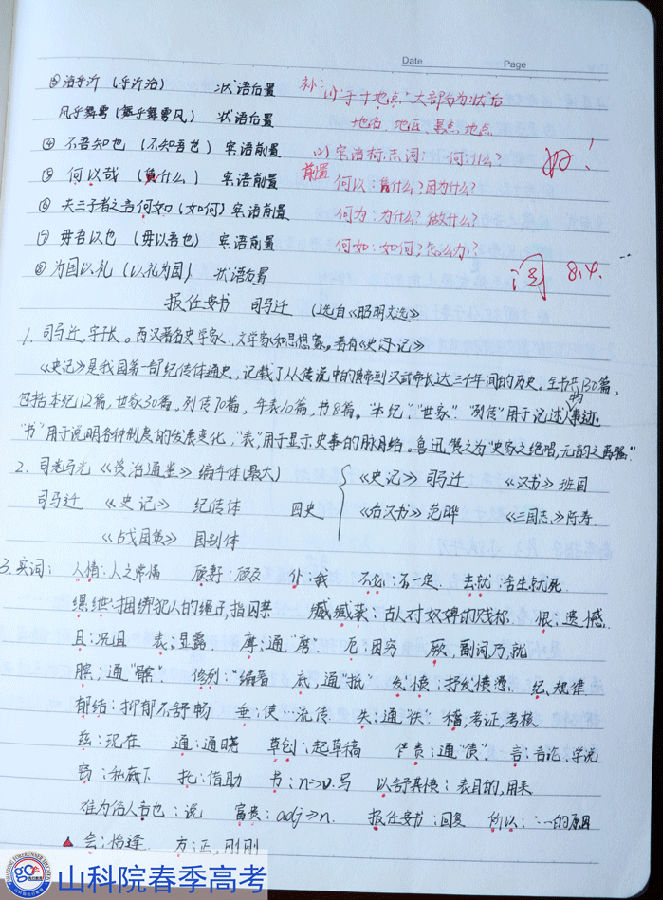 Date Page
③浴乎沂（乎沂浴） 状语后置 补：(1)"于+地点"大部分为状后
风乎舞雩（舞乎舞雩风） 状语后置 地名、地区、景点、地点
④不吾知也（不知吾也）宾语前置 (2)宾语标志词：何：什么? 好！
⑤何以哉（凭什么）宾语前置 前置 何以：凭什么?因为什么?
⑥夫三子者之言何如（如何）宾语前置 何为：为什么?做什么?
⑦毋吾以也（毋以吾也）宾语前置 何如：如何?怎么办?
⑧为国以礼（以礼为国）状语后置 8.4.
报任安书 司马迁 （选自《昭明文选》
1. 司马迁,字子长。西汉著名史学家、文学家和思想家。著有《史记》
《史记》是我国第一部纪传体通史,记载了从传说中的黄帝到汉武帝长达三千年间的历史。全书共130篇,
包括本纪12篇,世家30篇,列传70篇,年表10篇,书8篇。"本纪""世家""列传"用于记述人物事迹
"书"用于说明各种制度的发展变化,"表"用于显示史事的脉络。鲁迅赞之为"史家之绝唱,无韵之离骚."
2. 司马光《资治通鉴》编年体(最大) 《史记》司马迁 《汉书》班固
司马迁 《史记》 纪传体 四史 《后汉书》范晔 《三国志》陈寿
《战国策》 国别体
3. 实词： 人情：人之常情 顾 仆：我 不必：不一定 去就：舍生就死
缧绁：捆绑犯人的绳子,指囚禁 臧获：古人对奴婢的贱称 恨：遗憾
且：况且 表：显露 摩：通"磨" 厄：困穷 厥,副词乃,就
膑：通"髌" 修列："编著 底,通"抵" 发愤：抒发愤懑 纪：规律
郁结：抑郁不舒畅 垂：使…流传 失：通"佚" 稽,考证,考核
兹：现在 通：通晓 草创：起草稿 责：通"债" 言：言论、学说
私底下 托：借助 书：n→v.写 以舒其愤：表目的,用来
谁为俗人言也：说 富贵：adj→n. 报任安书：回复 所以：…的原因
会：恰逢 方：正,刚刚
山科院春季高考